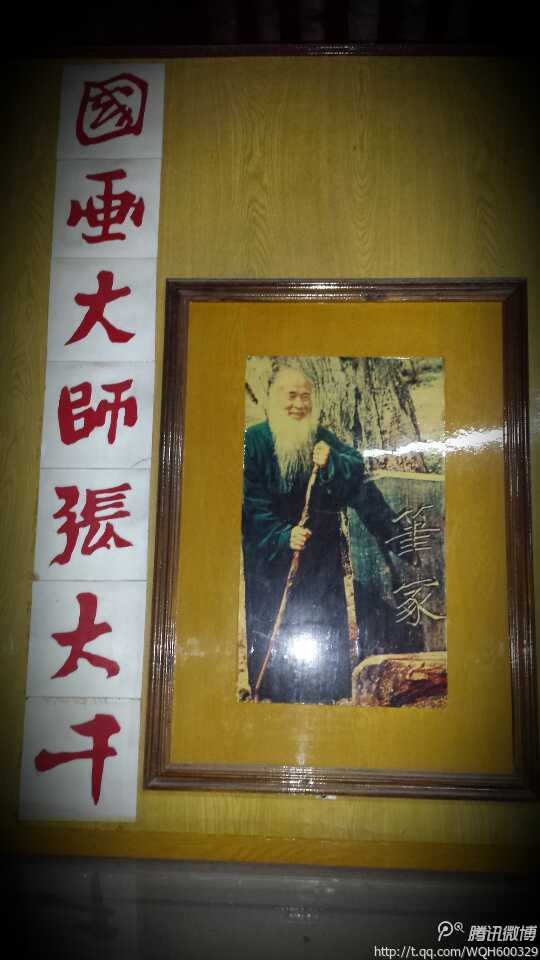 國画大師張大千
筆冢
腾讯微博
http://t.qq.com/WQH600329